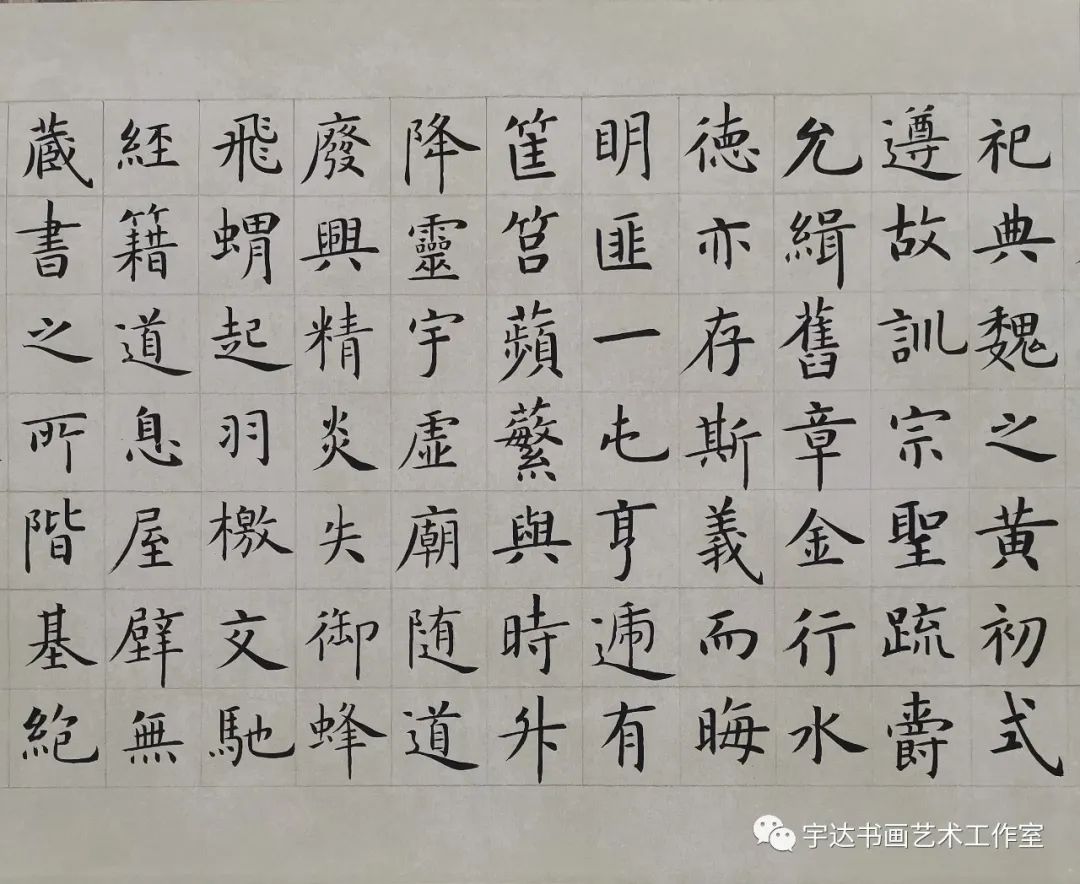 祀典魏之黄初式
遵故訓宗聖疏爵
允緝舊章金行水
德亦存斯義而晦
明匪一屯亨逓有
筐筥蘋蘩與時升
降靈宇虛廟随道
廢興精炎失御蜂
飛蝟起羽檄文馳
經籍道息屋壁無
藏書之所階基絶
宇达书画艺术工作室